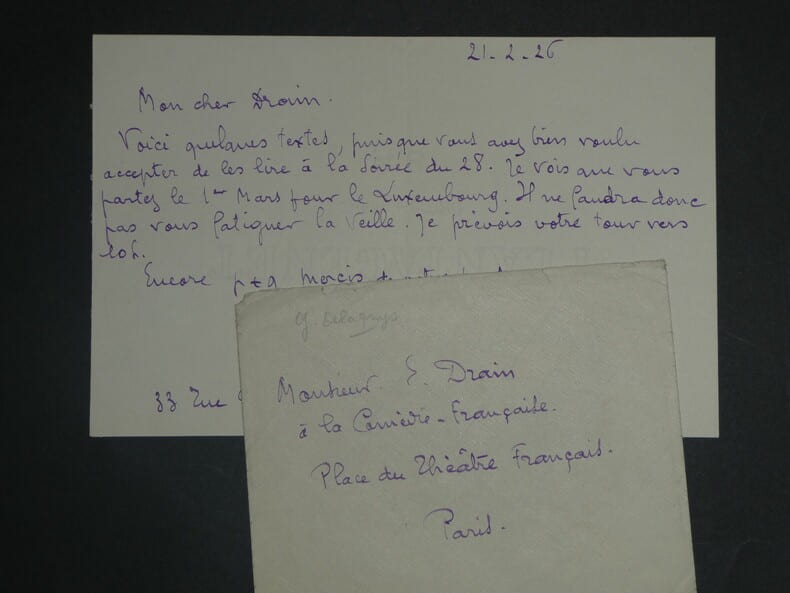 21-2-26
Mon cher Drain.
Voici quelques textes, puisque vous avez bien voulu
accepter de les lire à la Soirée du 28. Je vois que vous
partez le 1er Mars pour le Luxembourg. Il ne faudra donc
pas vous fatiguer la Veille. Je prévois votre tour vers
10h.
Encore mercis
33 Rue
G.
Monsieur E. Drain
à la Comédie-Française.
Place du Théâtre Français.
Paris.